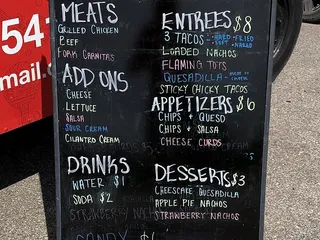 541
mail.c
MEATS
GRILLED CHICKEN
BEEF
PORK CARNITAS
ADD ONS
CHEESE
LETTUCE
SALSA
SOUR CREAM
CILANTRO CREAM
DRINKS
WATER $1
SODA $2
STRAWBERRY
CANDY $1
ENTREES $8
3 TACOS
LOADED NACHOS
FLAMING TOTS
QUESADILLA
STICKY CHICKY TACOS
APPETIZERS $6
CHIPS + QUESO
CHIPS + SALSA
CHEESE CURDS
DESSERTS $3
CHEESCAKE QUESADILLA
APPLE PIE NACHOS
STRAWBERRY NACHOS